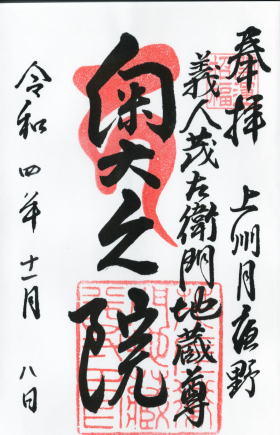 奉拝
上州月夜野
義人茂左衛門地蔵尊
奥之院
令和四年十一月八日